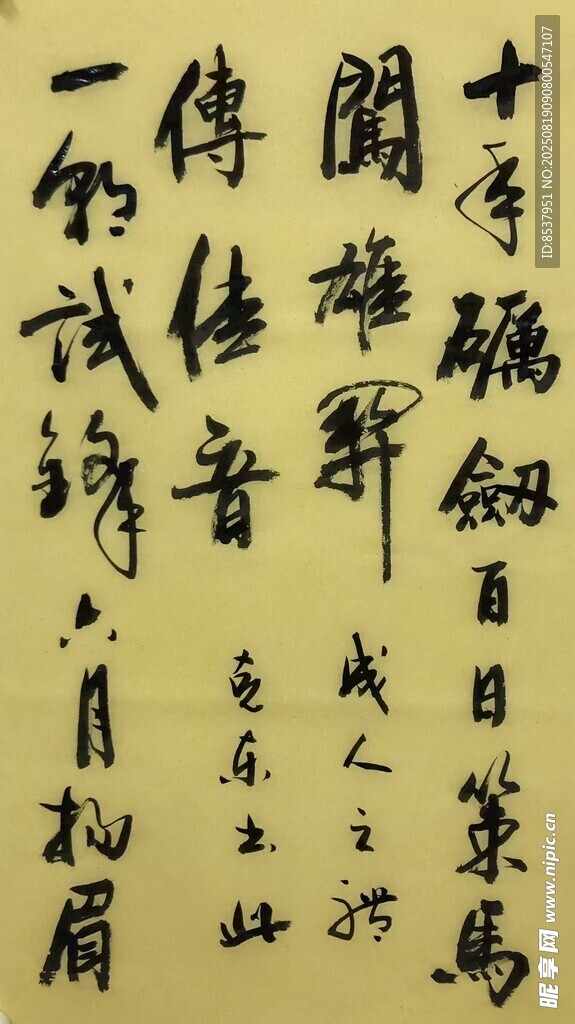 十年礪劒百日策馬
闖雄關
成人之禮
一朝試鋒六月揚眉
傳佳音
克东书此
ID:8537951 NO:20250819090800547107
昵享网 www.nipic.cn